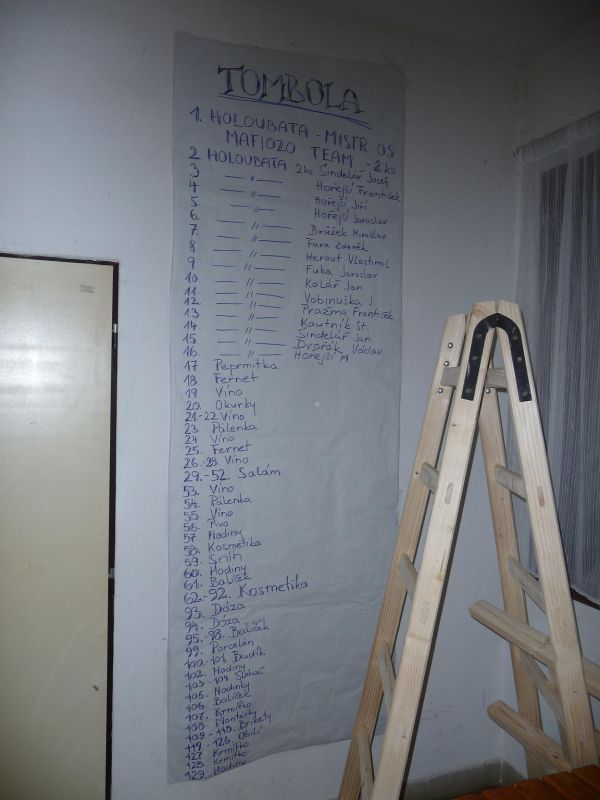 TOMBOLA
1. HOLOUBATA - MISTR OS
MAFIOZO TEAM - 2 ks
2 HOLOUBATA 2ks Šindelář Josef
3 — 〃 — Hořejší František
4 — 〃 — Hořejší Jiří
5. — 〃 — Hořejší Jaroslav
6. — 〃 — Brůžek Miroslav
7. — 〃 — Fara Zdeněk
8 — 〃 — Herout Vlastimil
9. — 〃 — Fuka Jaroslav
10 — 〃 — Kolář Jan
11. — 〃 — Vobinuška J
12. — 〃 — Pražma František
13 — 〃 — Koutník St
14. — 〃 — Šindelář Jan
15. — 〃 — Dvořák Václav
16. — 〃 — Hořejší M.
17 Peprmitka
18. Fernet
19. Víno
20. Okurky
21-22 Víno
23. Pálenka
24 Víno
25. Fernet
26.-28. Víno
29.-52. Salám
53. Víno
54. Pálenka
55. Víno
56. Pivo
57 Hodiny
58. Kosmetika
59. Sníh
60. Hodiny
61. Balíček
62.-92. Kosmetika
93. Dóza
94. Dóza
95.-98. Balíček
99. Porcelán
100.-101. Budík
102. Hodiny
103-104. Šlehač
105. Hodinky
106. Balíček
107. Krmítko
108. Monterky
109.-118. Brikety
119.-126. Obilí
127. Krmítko
128. Krmítko
129. Hodiny